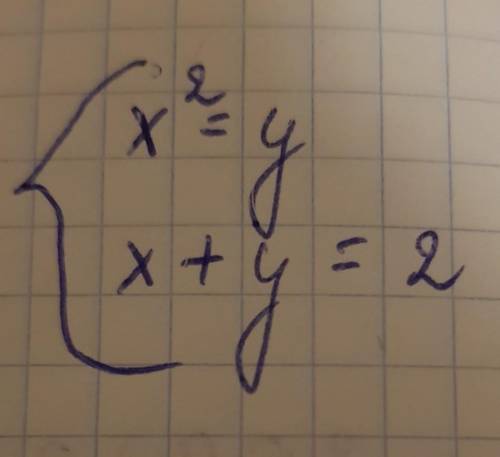 x² = y
x + y = 2